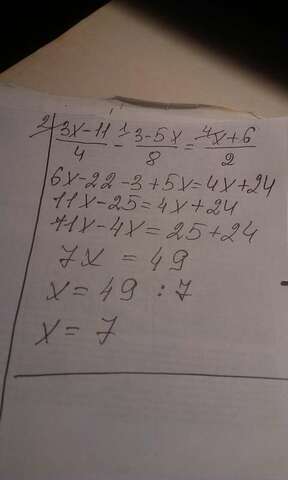 2) 3x-11/4 - 1 3-5x/8 = 4 x+6/2
6x-22-3+5x=4x+24
11x-25=4x+24
11x-4x=25+24
7x = 49
x= 49 :7
x= 7